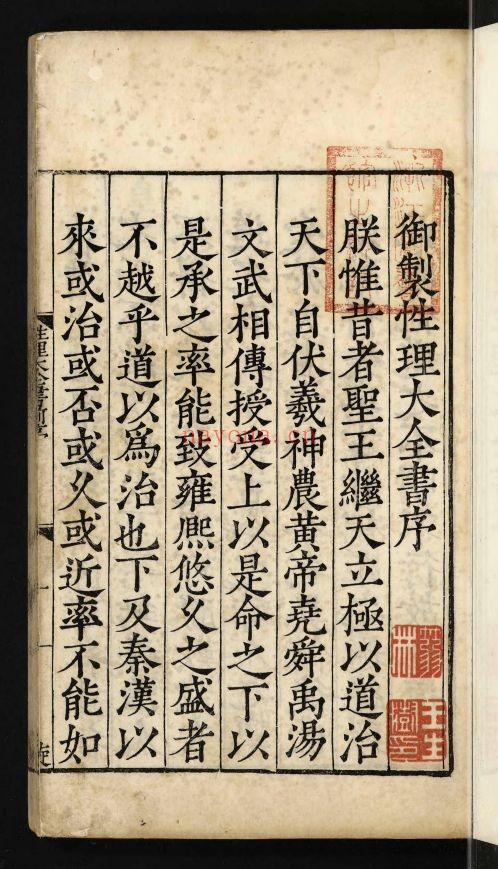 御製性理大全書序
朕惟昔者聖王繼天立極以道治
天下自伏羲神農黃帝堯舜禹湯
文武相傳授受上以是命之下以
是承之率能致雍熙悠久之盛者
不越乎道以爲治也下及秦漢以
來或治或否或久或近率不能如
性理大全書序
一